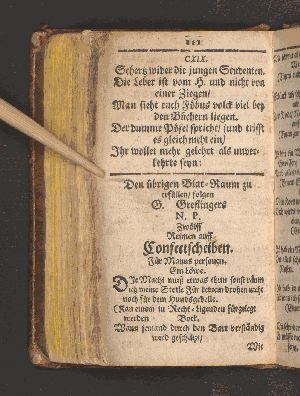 121
CXIX.
Schertz wider die jungen Studenten.
Die Leber ist vom H. und nicht von
einer Ziegen/
Man sieht euch Föbus volck viel bey
den Büchern liegen.
Der dumme Pöfel spricht/ (und trifft
es gleich nicht ein)
Ihr wollet mehr gelehrt als unver-
kehrte seyn:
Den übrigen Blat-Raum zu
erfüllen/ folgen
G. Greflingers
N. P.
Zwölff
Reimen auff
Confectscheiben.
Für Manns personen.
Ein Löwe.
Die Macht muß etwas thun sonst
ich meine Stelle Für keinem drohen nicht
noch für dem Hundsgebelle.
einem in Recht-
werden Bock.
Wann jemand durch den Bart verständig
wird geschätzt/
Wie